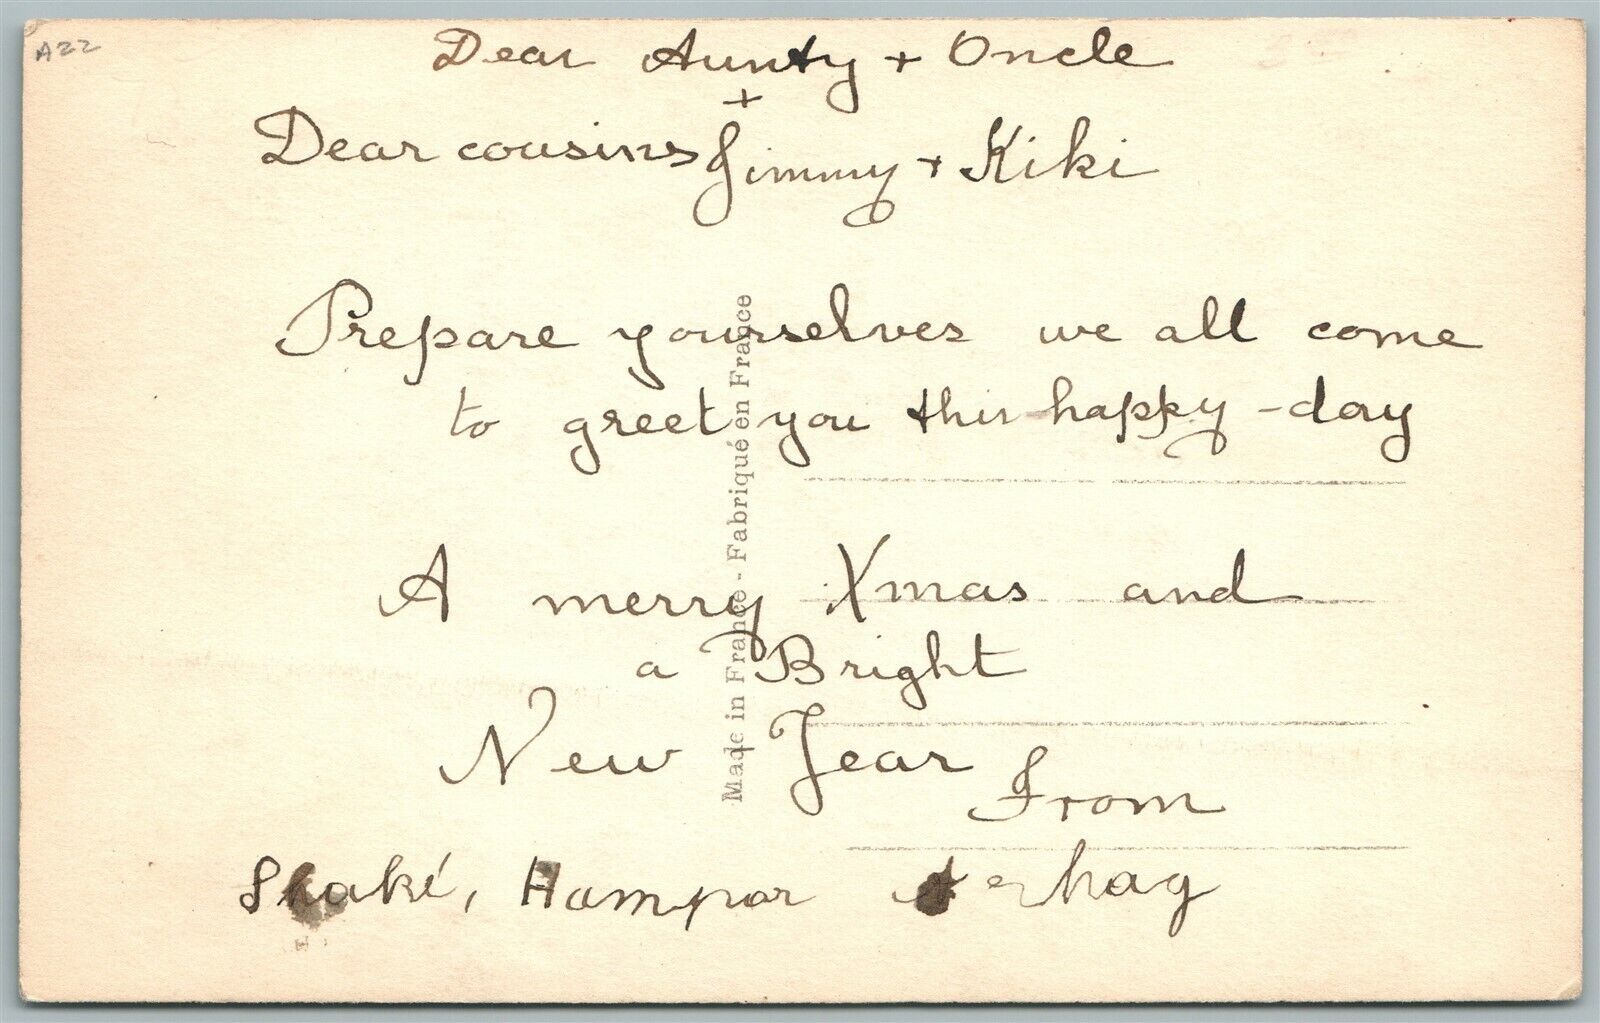 A22
Dear Aunty + Oncle
+
Dear cousins Jimmy + Kiki
Prepare yourselves we all come
to greet you this happy-day
A merry Xmas and
a Bright
New Year
From
Shaké, Hampar
Made in France - Fabriqué en France